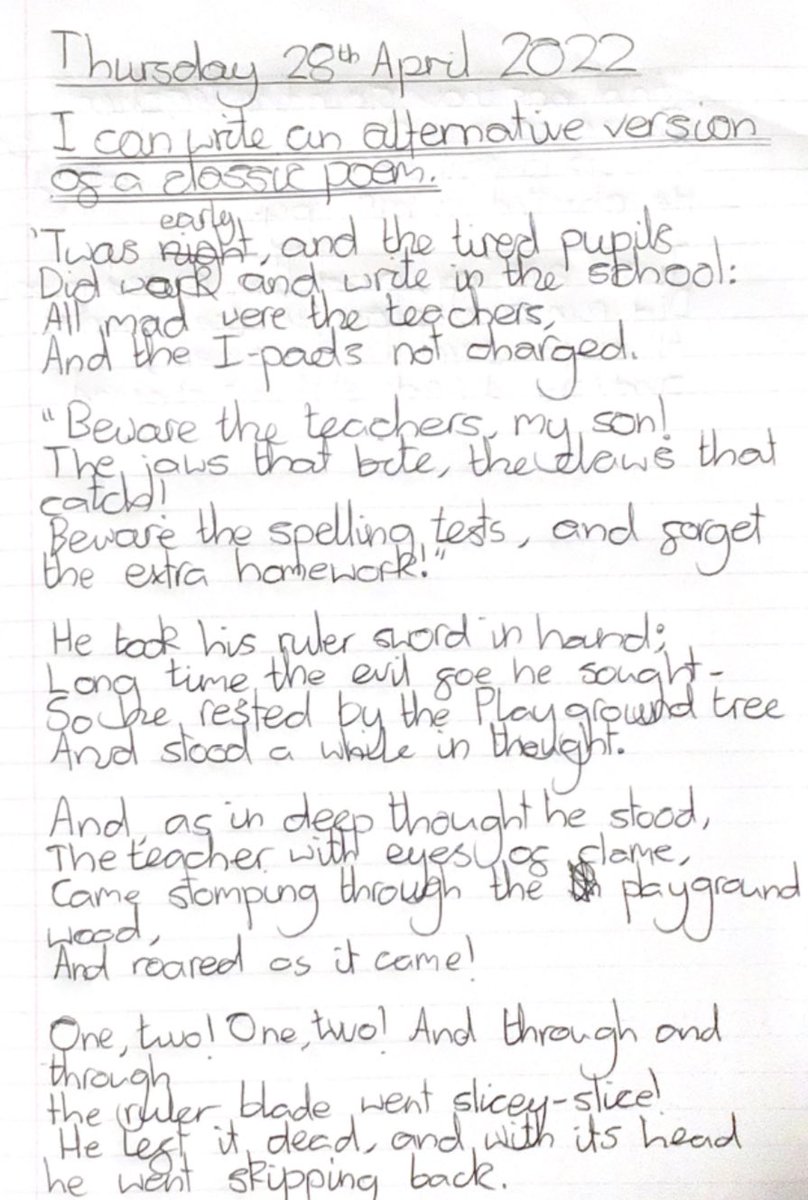 Thursday 28th April 2022
I can write an alternative version
of a classic poem.
early
'Twas night, and the tired pupils
Did work and write in the school:
All mad were the teachers,
And the I-pads not charged.
"Beware the teachers, my son!
The jaws that bite, the claws that
catch!
Beware the spelling tests, and forget
the extra homework!"
He took his ruler sword in hand;
Long time the evil foe he sought-
So he rested by the Playground tree
And stood a while in thought.
And, as in deep thought he stood,
The teacher with eyes of flame,
Came stomping through the playground
wood,
And roared as it came!
One, two! One, two! And through and
through
the ruler blade went slicey-slice!
He left it dead, and with its head
he went skipping back.